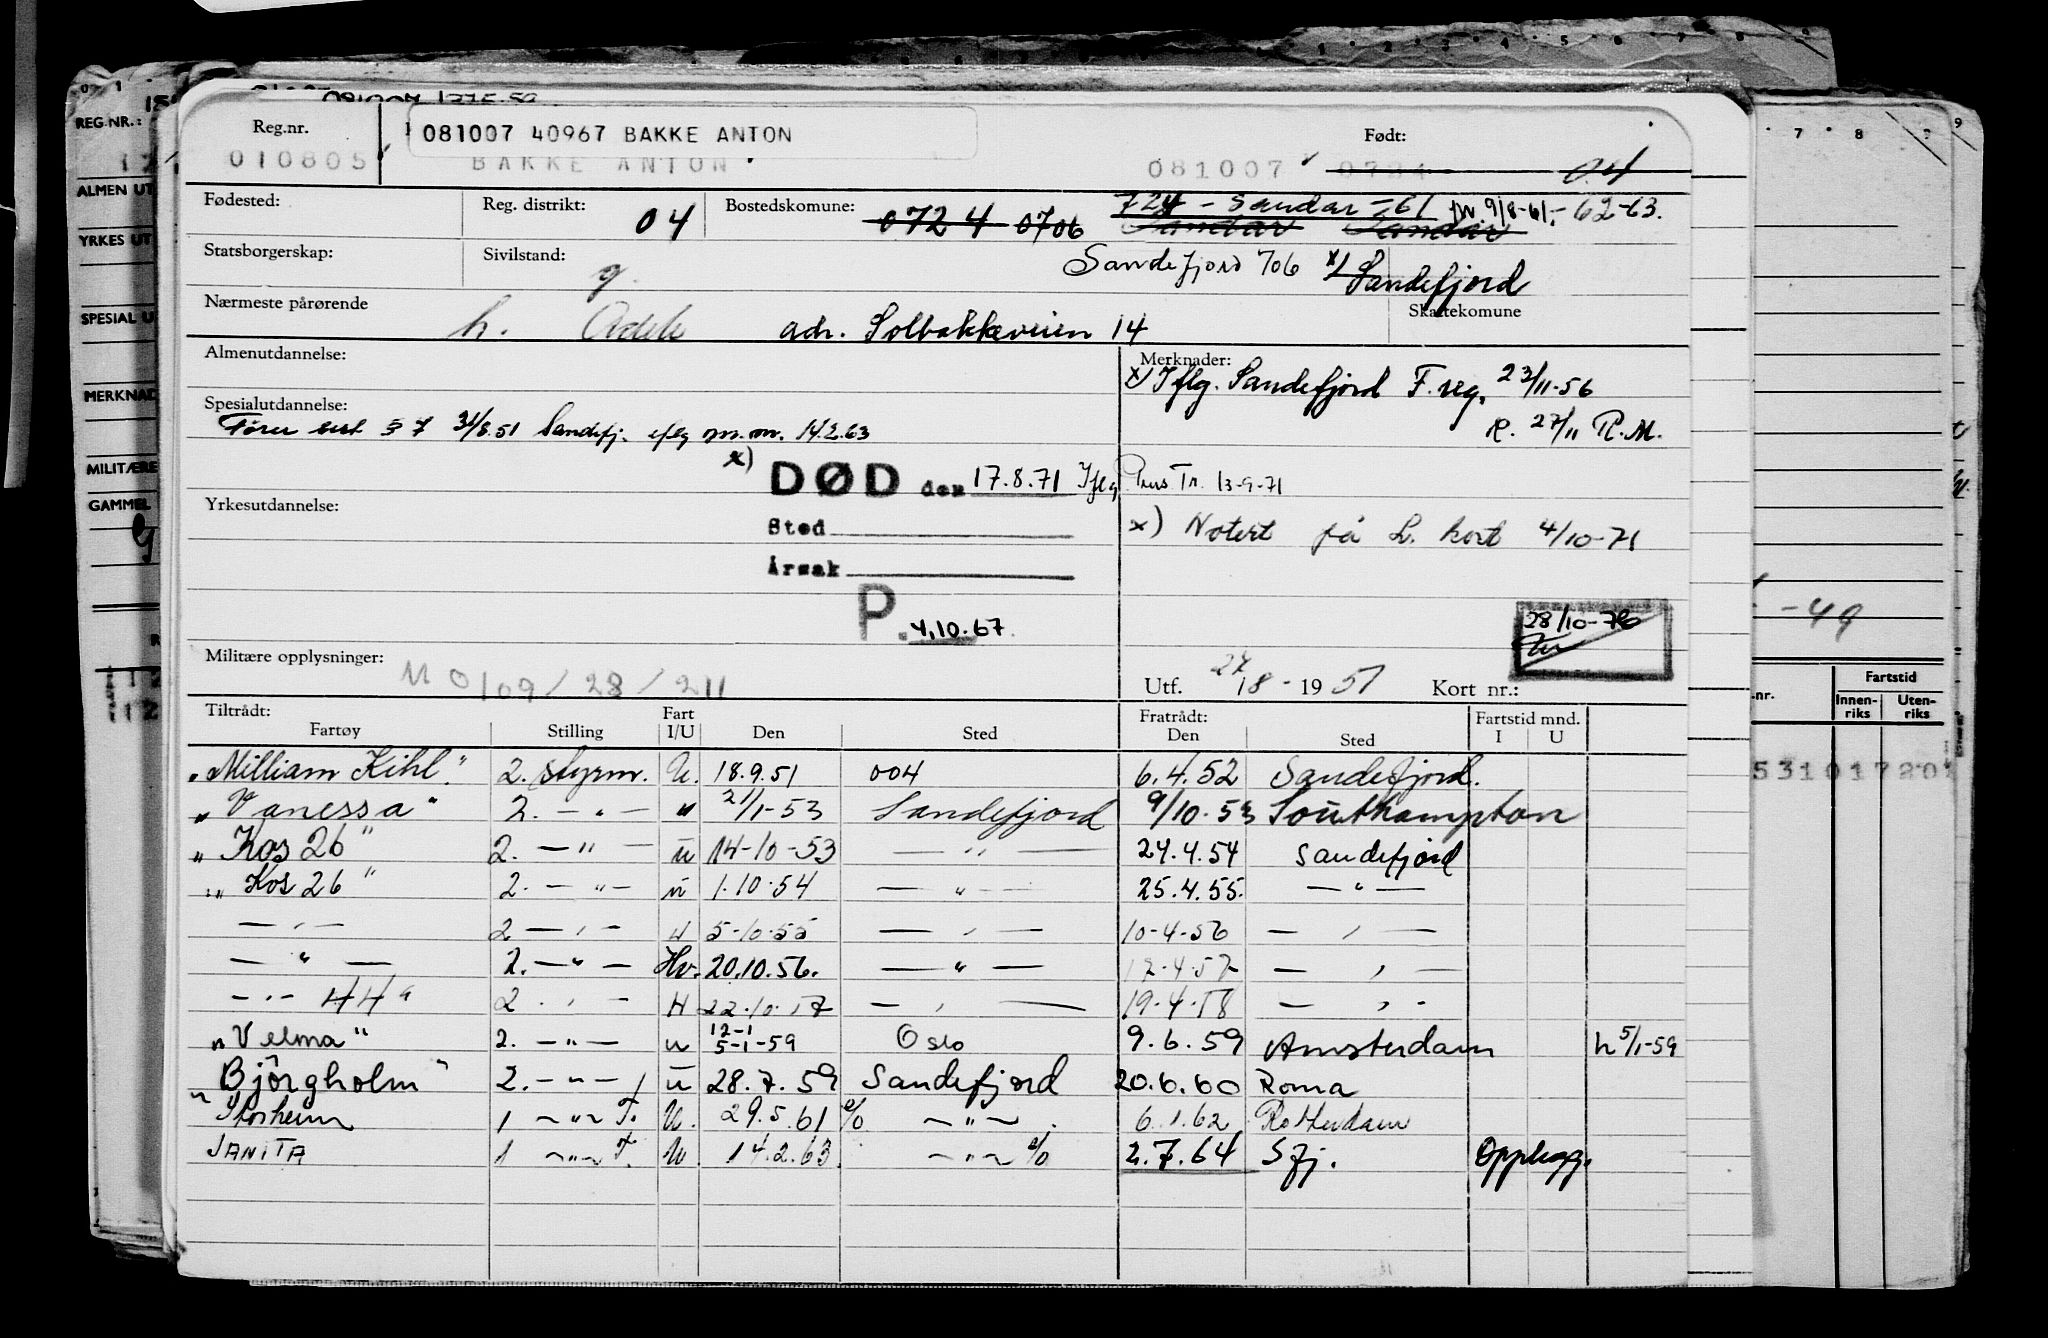 081007 1275-59
Reg.nr. Født:
081007 40967 BAKKE ANTON
010805 BAKKE ANTON 081007
Fødested: Reg. distrikt: 04 Bostedskomune: 0724 0706 724 - Sandar - 61 fr. 9/8-61.- 62-63.
Sandar Sandar
Statsborgerskap: Sivilstand: g. Sandefjord 706 x) Sandefjord
Nærmeste pårørende h. Adele adr. Solbakkeveien 14 Skattekomune
Almenutdannelse: Merknader:
x) Iflg. Sandefjord F. reg. 23/11-56
Spesialutdannelse:
Fører sert § 7 31/8.51 Sandefj. iflg m.m. 14.2.63 R. 27/11 R.M.
x) DØD den 17.8.71 Iflg Pens Tr. 13-9-71
Yrkesutdannelse: Sted x) Notert på L. kort 4/10-71
Årsak
P. 4.10.67 28/10-76
Militære opplysninger: M 0109/28/211 Utf. 27/8 - 1951 Kort nr.:
Tiltrådt: Fart Fratrådt: Fartstid mnd.
Fartøy Stilling I/U Den Sted Den Sted I U
"William Kihl" 2. styrm. U. 18.9.51 004 6.4.52 Sandefjord.
"Vanessa" 2. - " - " 21/1-53 Sandefjord 9/10.53 Southampton
"Kos 26" 2. - " - u 14-10-53 - " - 24.4.54 Sandefjord
"Kos 26" 2. - " - u 1.10.54 - " - 25.4.55. - " -
- " - 2 - " - H 5-10-55 - " - 10-4-56 - " -
- " - 2. - " - Hv. 20.10.56. - " - 12-4-57 - " -
- " - 44" 2 - " - H 22-10-57 - " - 19-4-58 - " -
"Velma" 2. - " - u 12-1 5-1-59 Oslo 9.6.59 Amsterdam h 5/1-59
"Björgholm" 2. - " - u 28.7.59 Sandefjord 20.6.60 Roma
Storheim 1 - " - F. U. 29.5.61 % - " - 6.1.62 Rotterdam
JANITA 1 - " - F. U. 14.2.63. - " - % 2.7.64 Sfj. Opplegg.
REG.NR.:
ALMEN UT
YRKES UT
SPESIAL U
MERKNAD
MILITÆRE
GAMMEL
-49
.nr. Fartstid
Innen-riks Uten-riks
531017201